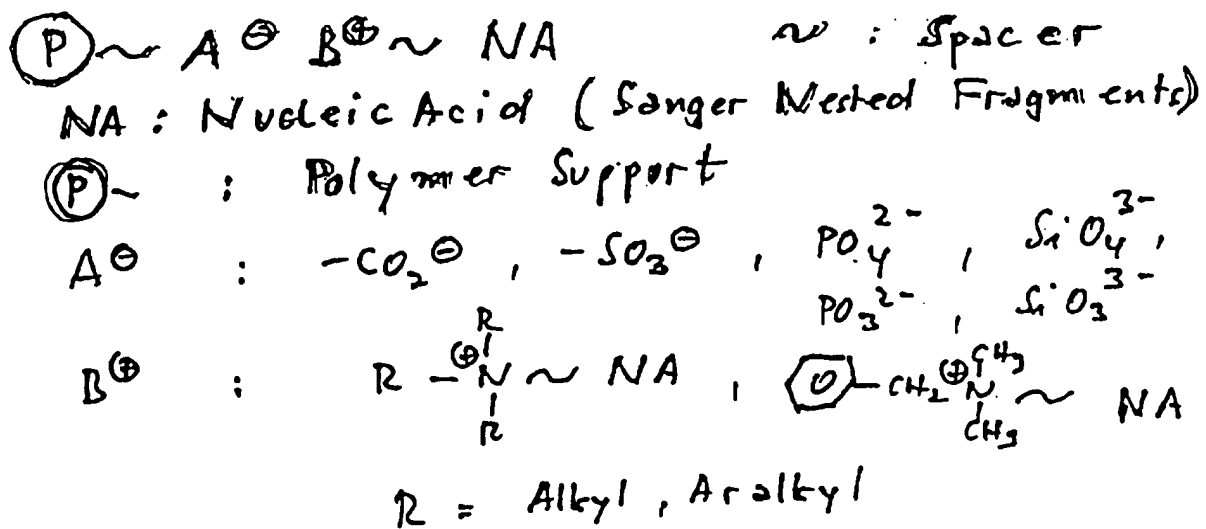 Ⓟ~ A⊖ B⊕ ~ NA ~ : Spacer
NA : Nucleic Acid ( Sanger Nested Fragments)
Ⓟ~ : Polymer Support
A⊖ : -CO₂⊖ , -SO₃⊖ , PO₄²⁻ , SiO₄³⁻ ,
PO₃²⁻ , SiO₃³⁻
R
B⊕ : R -⊕N ~ NA , -CH₂ ⊕N ~ NA
CH₃
R CH₃
R = Alkyl , Aralkyl